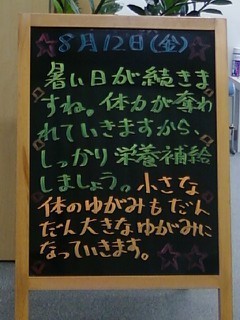 8月12日(金)
暑い日が続きま
すね。体力が奪わ
れていきますから、
しっかり栄養補給
しましょう。小さな
体のゆがみもだん
だん大きなゆがみに
なっていきます。